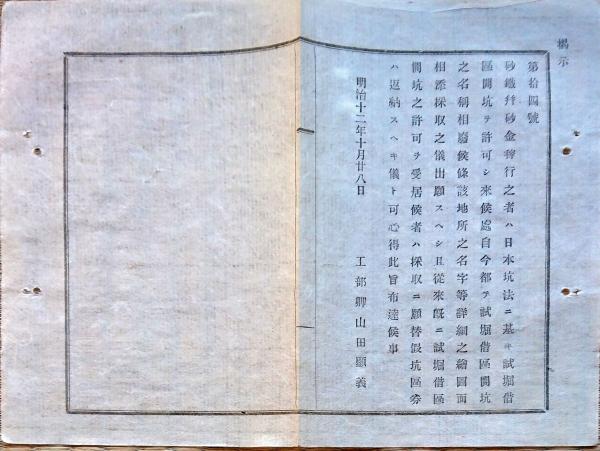 揭示
第拾四號
砂鐵幷砂金稼行之者ハ日本坑法ニ基キ試掘借
區開坑ヲ許可シ來候處自今都テ試掘借區開坑
之名稱相廢候條該地所之名字等詳細之繪圖面
相添採取之儀出願スヘシ且從來既ニ試掘借區
開坑之許可ヲ受居候者ハ採取ニ願替假坑區券
ハ返納スヘキ儀ト可心得此旨布達候事
明治十二年十月廿八日
工部卿山田顯義